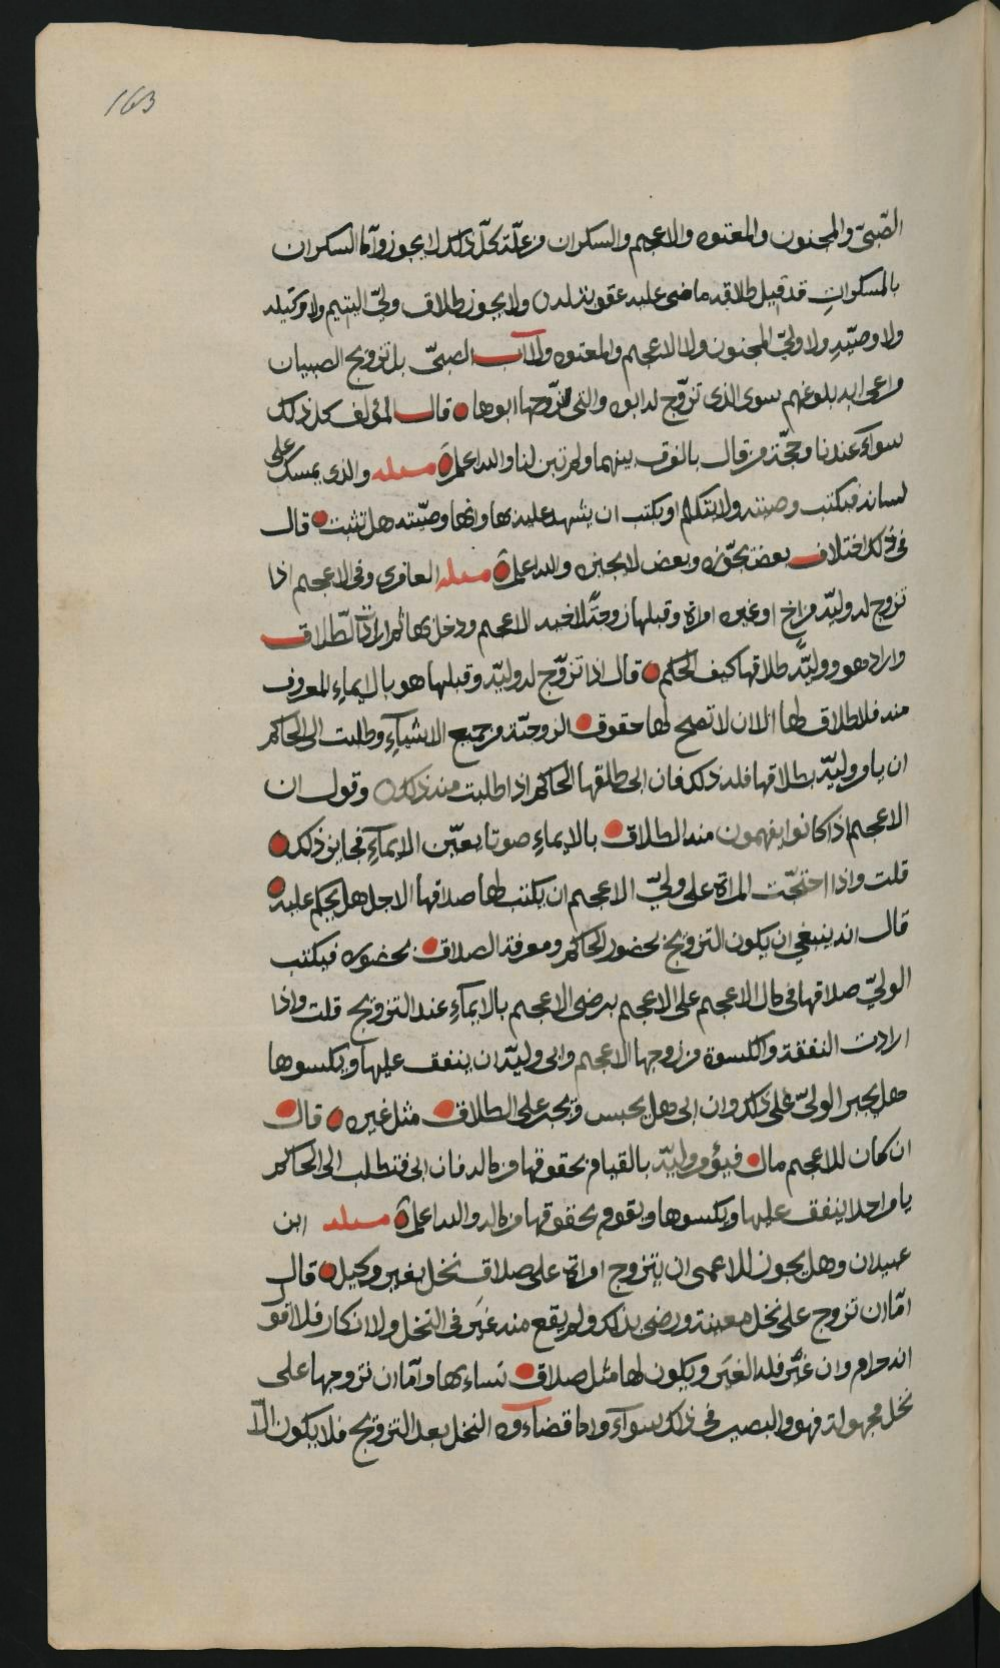 163
الصّبيّ والمجنون والمعتوه والاعجم والسكران من علّة كلّ ذلك لا يجوز وامّا السكران
بالمسكرات قد قيل طلاقه ماضى عليه عقوبة له ولا يجوز طلاق وليّ اليتيم ولا وكيله
ولا وصيّه ولا وليّ المجنون ولا الاعجم والمعتوه ولا اب الصبيّ بل تزويج الصبيان
مراعى به بلوغهم سوى الذى تزوّج له ابوه والتى زوّجها ابوها قال المؤلف كل ذلك
سواء عندنا وحجّة من قال بالفرق بينهما ولم تبن لنا والله اعلم مسئله والذى يمسك على
لسانه فيكتب وصيته ولا يتكلم او يكتب ان يشهد عليه بها وانها وصيّته هل تثبت قال
فى ذلك اختلاف بعض يجوّزه وبعض لا يجيزه والله اعلم مسئله الغافرى وفى الاعجم اذا
تزوج له وليّه من اخ او غيره امراة وقبلها زوجة لاخيه الاعجم ودخل بها ثم ارادت الطّلاق
واراد هو ووليّه طلاقها كيف الحكم قال اذا تزوّج له وليّه وقبلها هو بالايماء المعروف
منه فلا طلاق لها الا ان لا تصح لها حقوق الزوجيّة من جميع الاشياء وطلبت الى الحاكم
ان يامر وليّه بطلاقها فله ذلك فان ابى طلقها الحاكم اذا طلبت منه ذلك وقول ان
الاعجم اذا كانوا يفهمون منه الطلاق بالايماء صوتا يعيّن الايماء فجايز ذلك
قلت واذا احتجّت المراة على وليّ الاعجم ان يكتب لها صداقها الاجل هل يحكم عليه
قال انه ينبغى ان يكون التزويج بحضور الحاكم ومعرفة الصداق بحضوره فيكتب
الوليّ صداقها فى مال الاعجم على الاعجم برضى الاعجم بالايماء عند التزويج قلت واذا
ارادت النفقة والكسوة من زوجها الاعجم وابى وليّه ان ينفق عليها ويكسوها
هل يجبر الوليّ على ذلك وان ابى هل يحبس ويجبر على الطلاق مثل غيره قال
ان كان للاعجم مال فيؤمر وليّه بالقيام بحقوقها من ماله فان ابى فتطلب الى الحاكم
يامر احدا ينفق عليها ويكسوها ويقوم بحقوقها من ماله والله اعلم مسئله ابن
عبيدان وهل يجوز للاعمى ان يتزوج امراة على صداق نخل بغير وكيل قال
امّا ان تزوج على نخل معينة ورضى بذلك ولم يقع منه غير فى النخل ولا انكار فلا اقول
انه حرام وان غيّر فله الغير ويكون لها مثل صداق نساءها وامّا ان تزوجها على
نخل مجهولة فهو والبصير فى ذلك سواء واما قضاءوه النخل بعد التزويج فلا يكون الّا